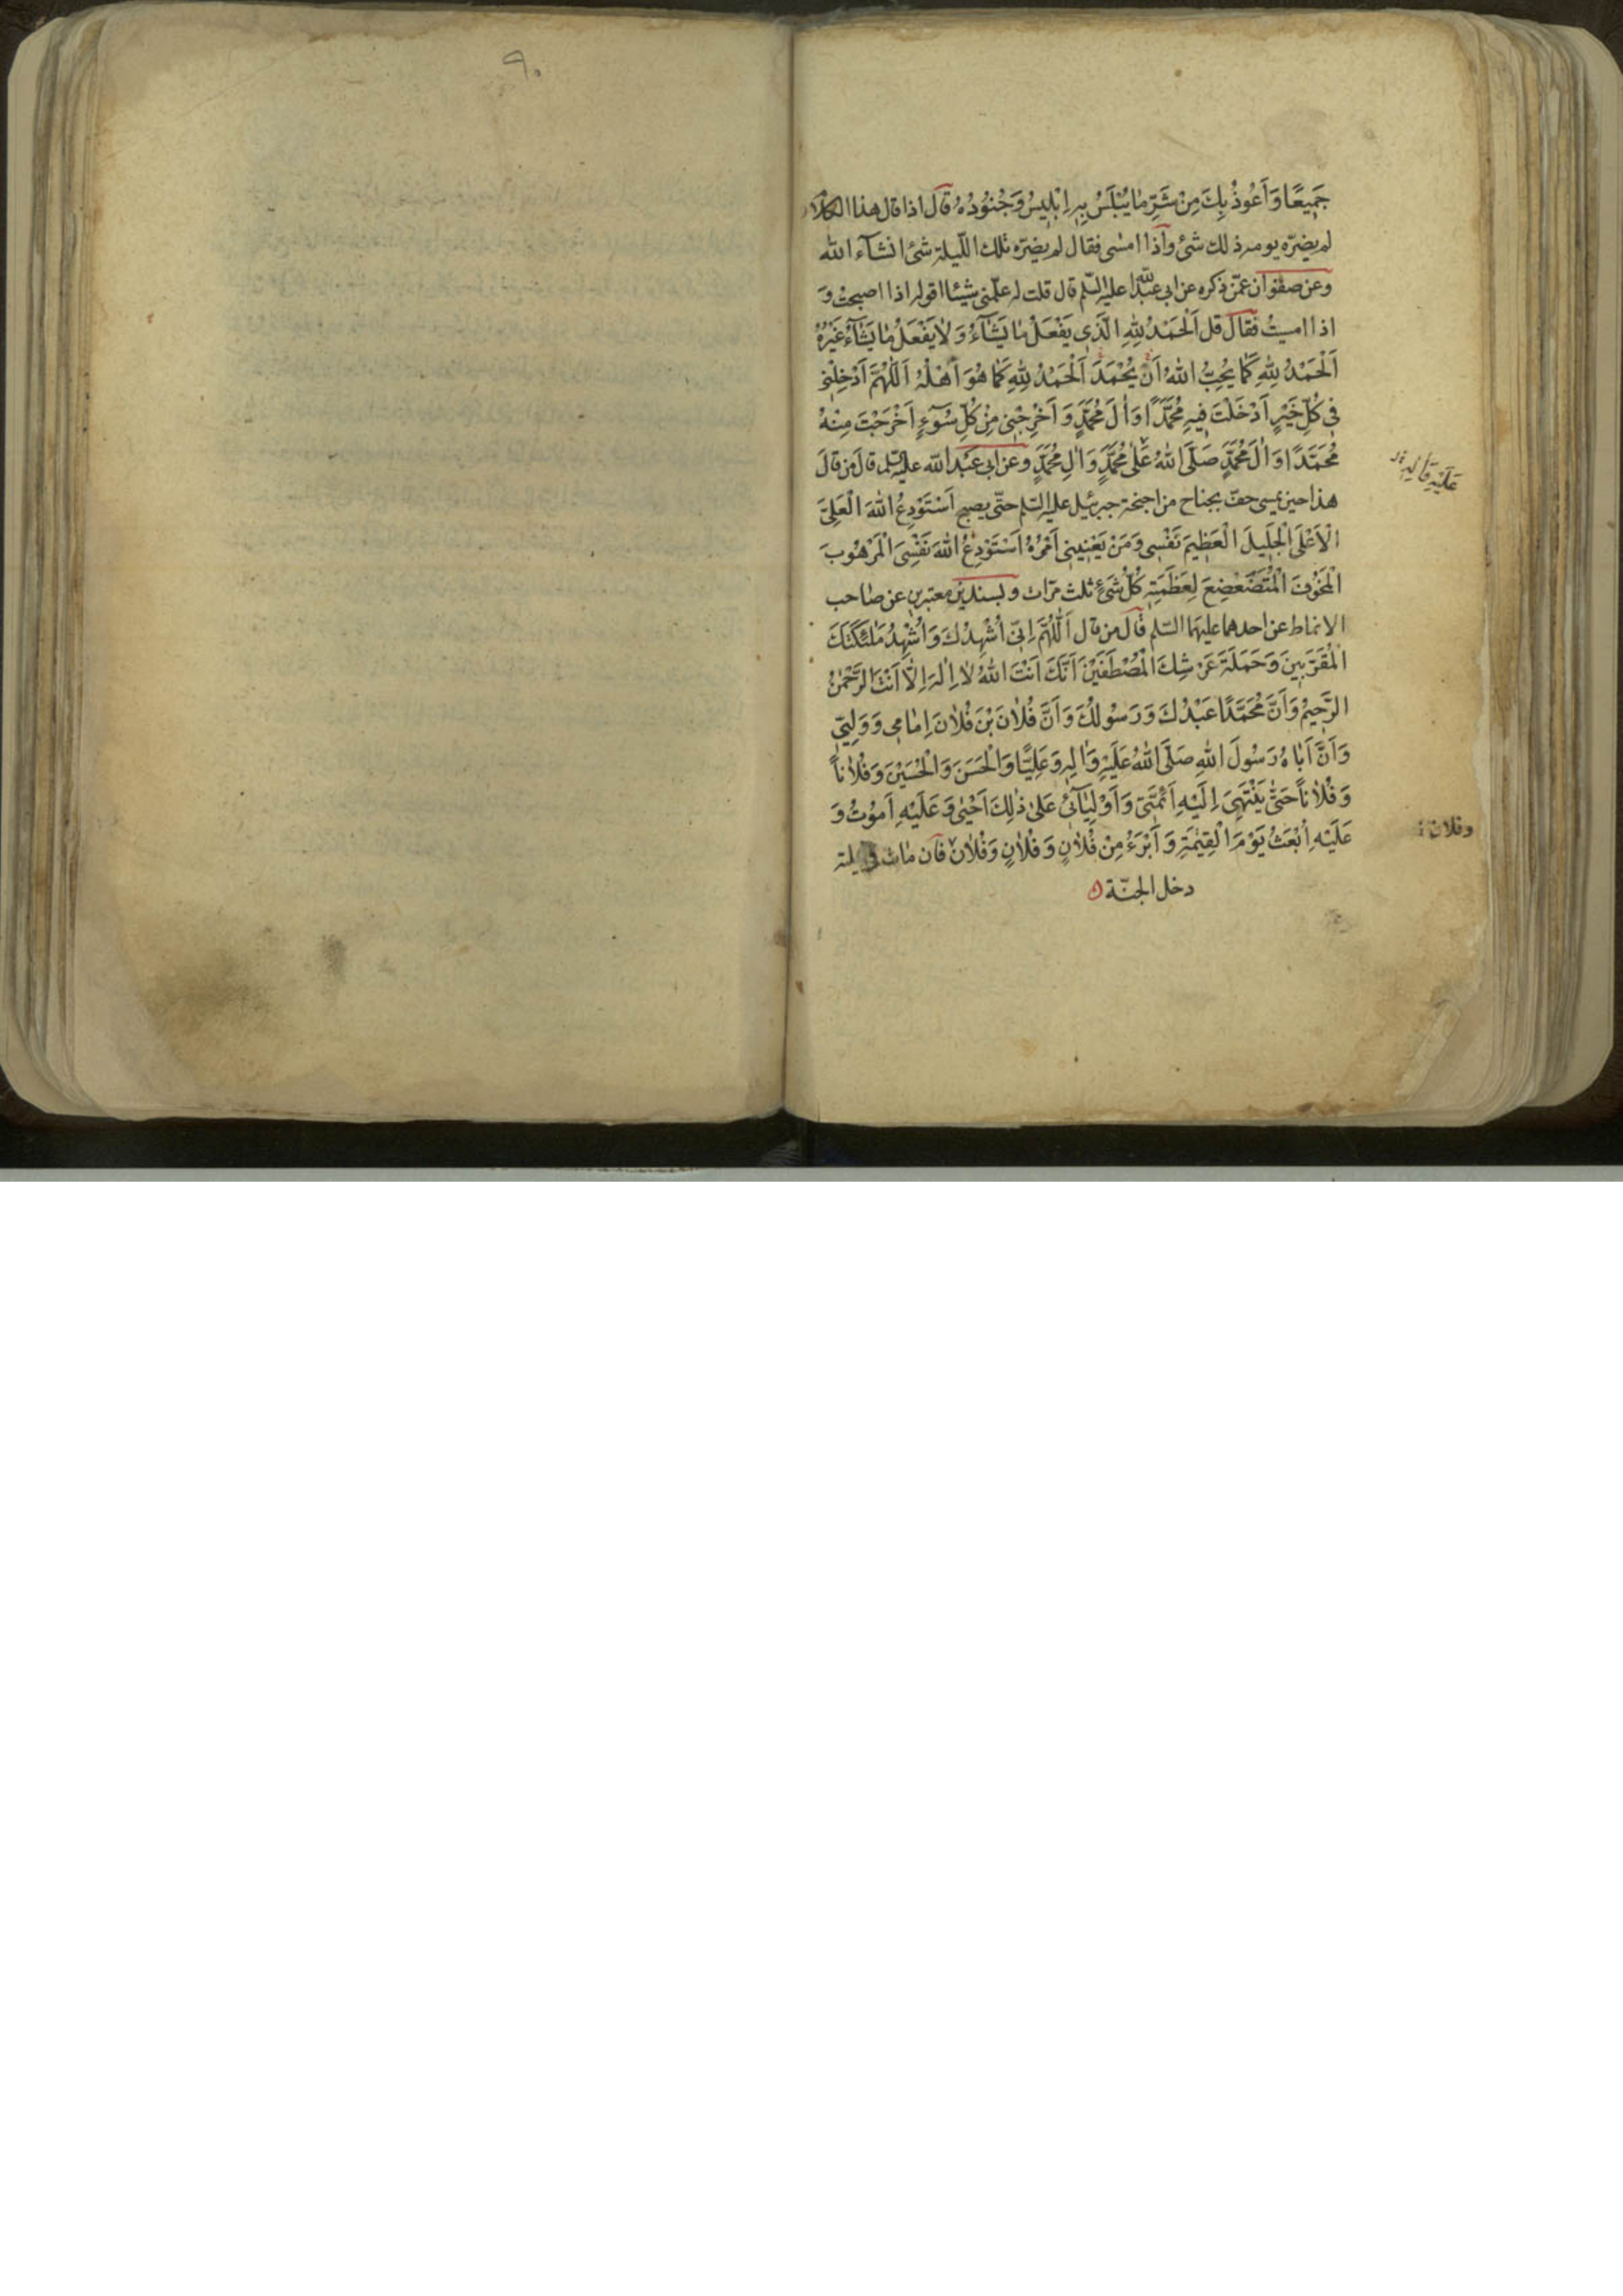 جَمِيعًا وَاَعُوذُ بِكَ مِنْ شَرِّ مٰا يُبْلَسُ بِهِ اِبْلِيسُ وَجُنُودُهُ قال اذا قال هذا الكلام
لم يضرّه يومه ذلك شئ واذا امسى فقال لم يضرّه تلك اللّيلة شئ انشآء الله
وعن صفوان عمّن ذكره عن ابى عبدالله عليه السّلم قال قلت له علّمنى شيئا اقوله اذا اصبحت وَ
اذا امسيتُ فقال قل اَلْحَمْدُ لِلّٰهِ الَّذِى يَفْعَلُ مٰا يَشٰآءُ وَلٰا يَفْعَلُ مٰا يَشٰآءُ غَيْرُهُ
اَلْحَمْدُ لِلّٰهِ كَمٰا يُحِبُّ اللهُ اَنْ يُحْمَدَ اَلْحَمْدُ لِلّٰهِ كَمٰا هُوَ اَهْلُهُ اَللّٰهُمَّ اَدْخِلْنِى
فِى كُلِّ خَيْرٍ اَدْخَلْتَ فِيهِ مُحَمَّدًا وَاٰلَ مُحَمَّدٍ وَ اَخْرِجْنِى مِنْ كُلِّ سُوٓءٍ اَخْرَجْتَ مِنْهُ
مُحَمَّدًا وَاٰلَ مُحَمَّدٍ صَلَّى اللهُ عَلٰى مُحَمَّدٍ وَاٰلِ مُحَمَّدٍ وعن ابى عَبْد الله عليه السّلم قال من قال
هذا حين يمسى حفّ بجناح من اجنحة جبرئيل عليه السّلم حتّى يصبح اَسْتَوْدِعُ اللهَ الْعَلِىَّ
الْاَعْلَى الْجَلِيلَ الْعَظِيمَ نَفْسِى وَمَنْ يَعْنِينِى اَمْرُهُ اَسْتَوْدِعُ اللهَ نَفْسِىَ الْمَرْهُوبَ
الْمَخُوفَ الْمُتَضَعْضِعَ لِعَظَمَتِهِ كُلُّ شَىْءٍ ثلث مرّات وبسندين معتبرين عن صاحب
الانماط عن احدهما عليهما السّلم قال من قال اَللّٰهُمَّ اِنِّى اُشْهِدُكَ وَاُشْهِدُ مَلٰئِكَتَكَ
الْمُقَرَّبِينَ وَحَمَلَةَ عَرْشِكَ الْمُصْطَفَيْنَ اَنَّكَ اَنْتَ اللهُ لٰا اِلٰهَ اِلّٰا اَنْتَ الرَّحْمٰنُ
الرَّحِيمُ وَاَنَّ مُحَمَّدًا عَبْدُكَ وَرَسُولُكَ وَاَنَّ فُلٰانَ بْنَ فُلٰانَ اِمٰامِى وَوَلِيّىِ
وَاَنَّ اَبٰاهُ رَسُولَ اللهِ صَلَّى اللهُ عَلَيْهِ وَاٰلِهِ وَعَلِيًّا وَالْحَسَنَ وَالْحُسَيْنَ وَفُلٰاناً
وَفُلٰاناً حَتّٰى يَنْتَهِىَ اِلَيْهِ اَئِمَّتِى وَاَوْلِيٰآئِى عَلىٰ ذٰلِكَ اَحْيىٰ وَعَلَيْهِ اَمُوتُ وَ
عَلَيْهِ اُبْعَثُ يَوْمَ الْقِيٰمَةِ وَ اَبْرَءُ مِنْ فُلٰانٍ وَفُلٰانٍ وَفُلٰان فان مات فى ليلته
دخل الجنّة
عَلَيْهِ وَاٰلِهِ
وفلان
٩٠